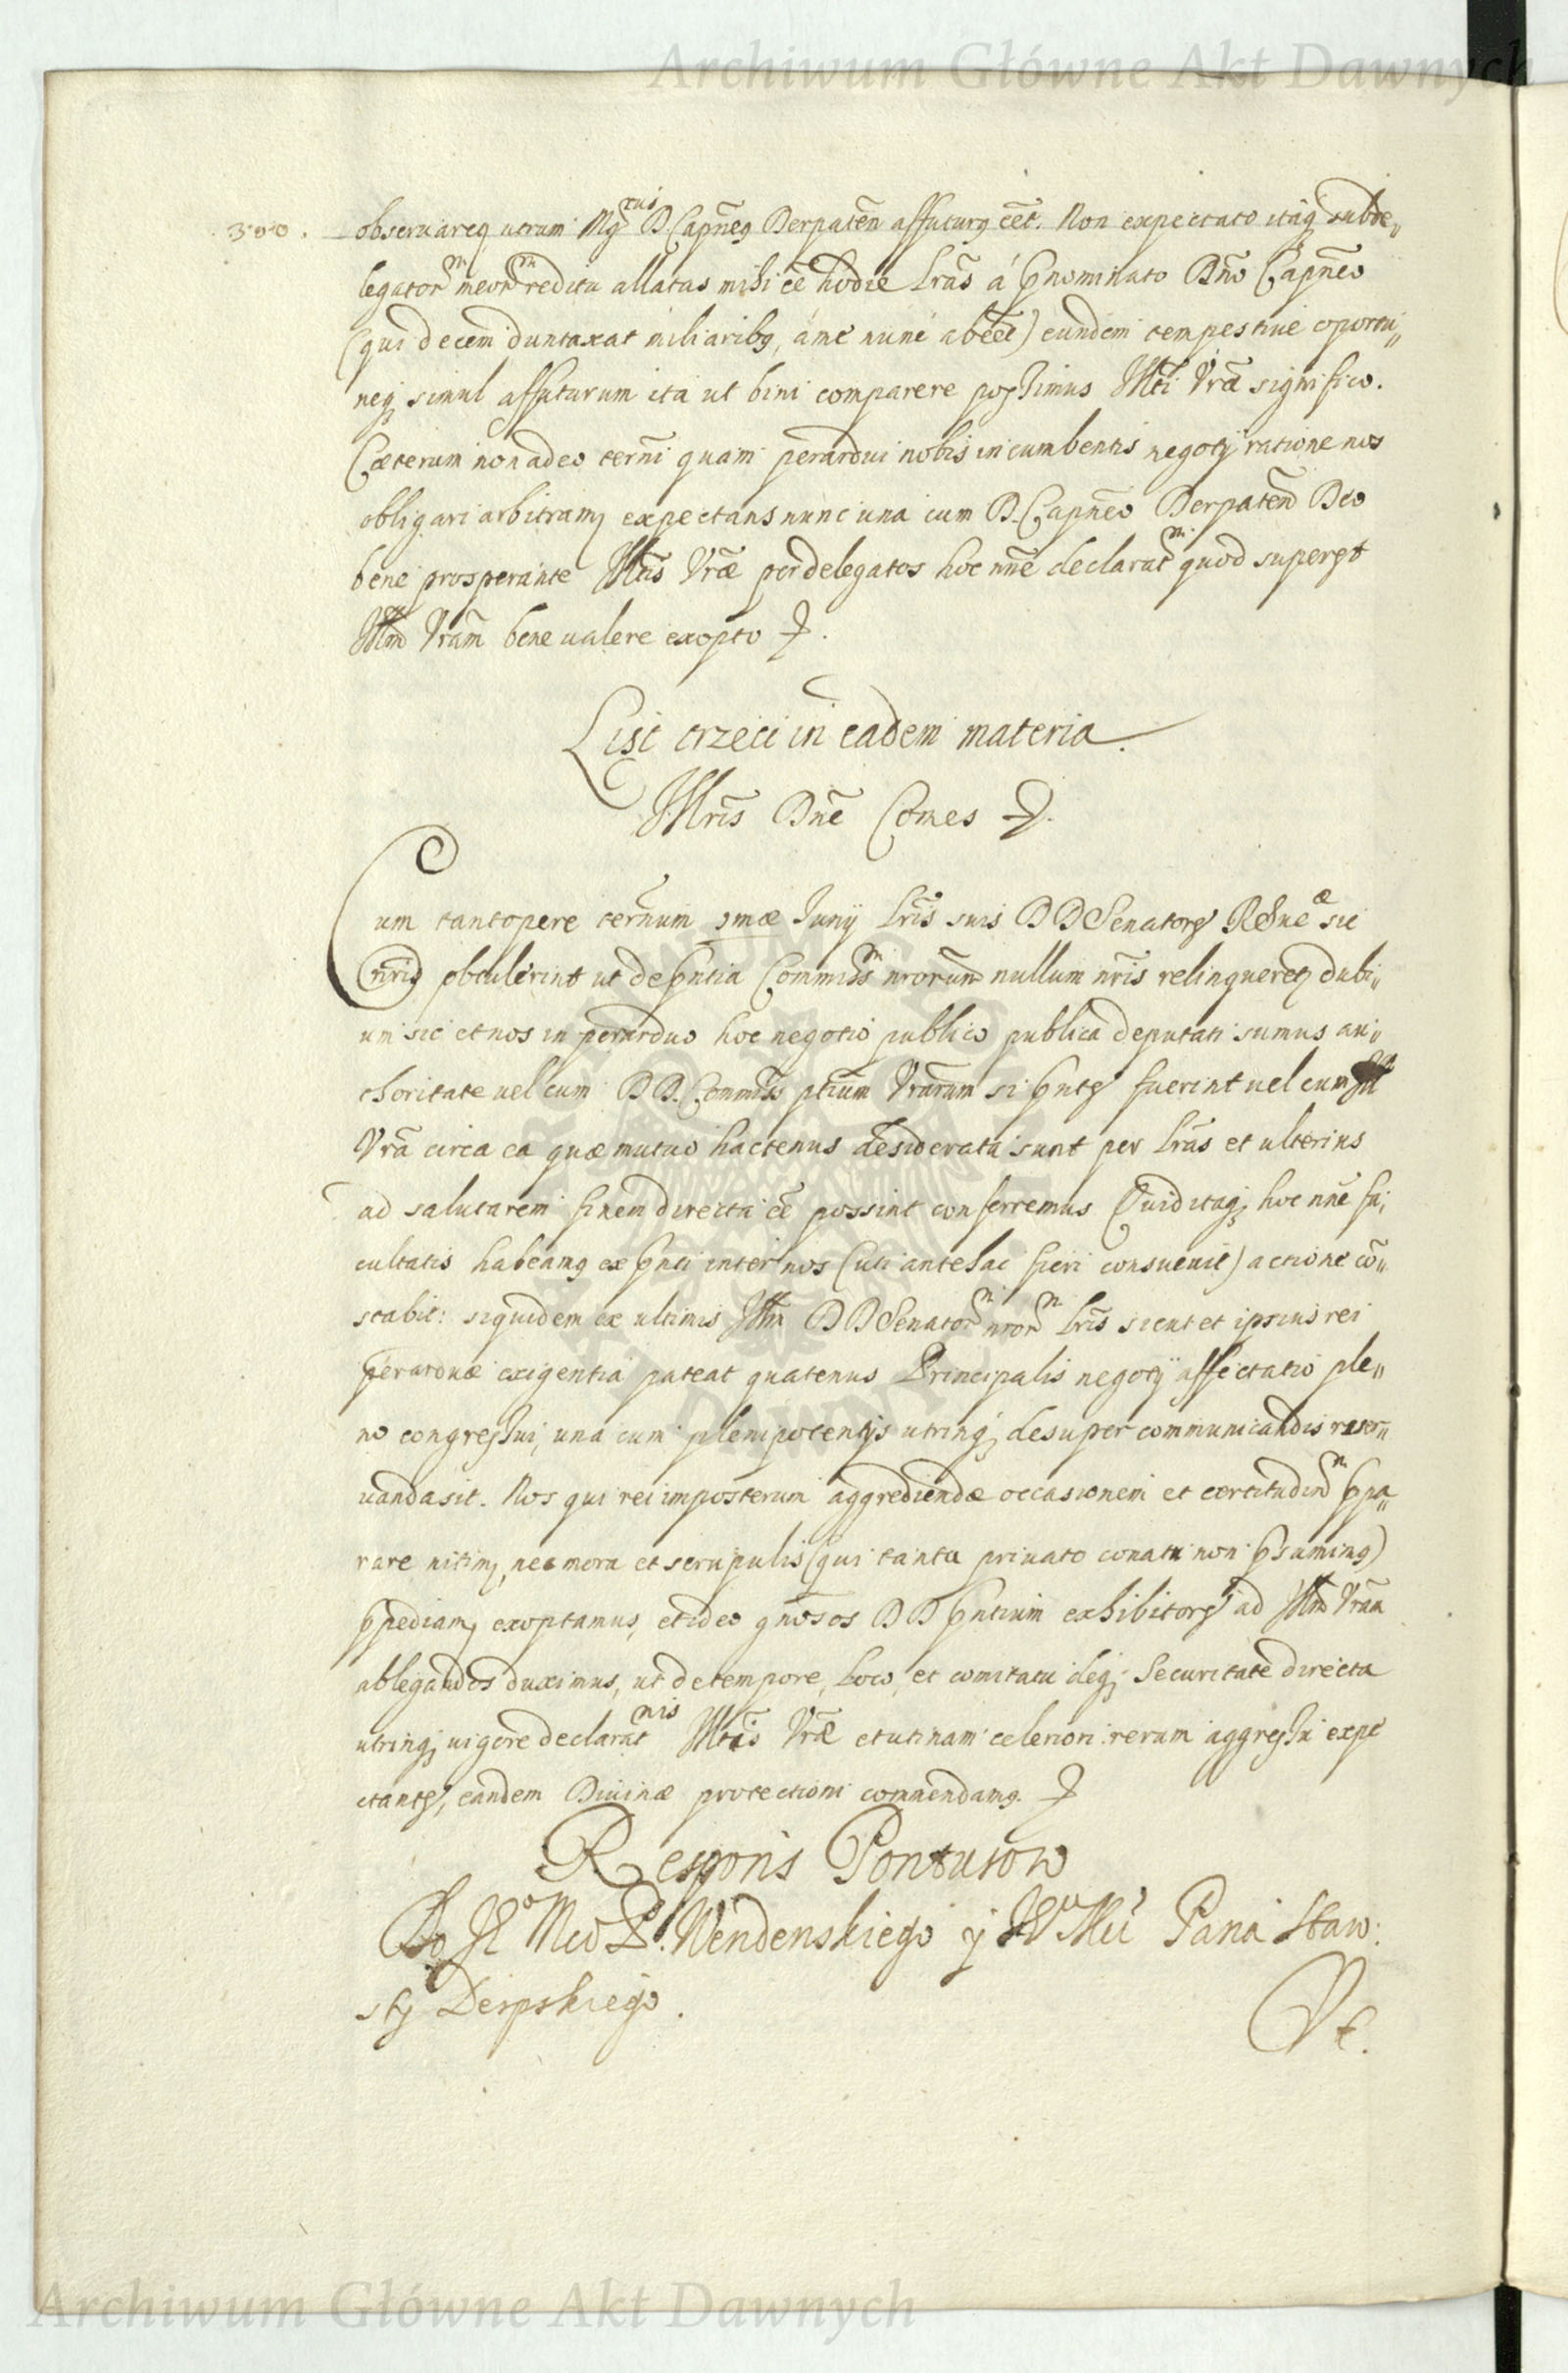 Archiwum Główne Akt Dawnych
300.
obseruareq utrum Mgcus D. Capñeq Derpateñ affuturq eet. Non expectato itaq subde„
legatorm meorm reditu allatas mihi ee hodie Lrãs á pnominato Dño Capñeo
(qui decem duntaxat miliaribq, áme nunc abeet) eundem tempestiue oportu„
neq simul affuturum ita ut bini comparere possimus Illti Vrã significo.
Cæterum non adeo termi quam perardui nobis incumbentis negotij ratione nos
obligari arbitramq expectans nunc una cum D. Capñeo Derpateñ Deo
bene prosperante Illtis Vræ per delegatos hoc nñe declaratm quod superest
Illm Vram bene ualere exopto
List trzeci in eadem materia.
Illris Dñe Comes
Cum tantopere termum 9mæ Junij Lris suis D D Senatores RSueæ sic
nris obtulerint ut de pntia Commissm nrorum nullum nris relinqueretq dubi„
um sic et nos in perarduo hoc negotio publico publica deputati sumus au„
thoritate uel cum D D. Commiss ptium Vrarum si pntes fuerint uel cum Ill
Vrã circa ea quæ mutuo hactenus desiderata sunt per Lrãs et ulterius
ad salutarem finem directa ee possint conferremus Quid itaq hoc nñe fa„
cultatis habeamq ex pnti inter nos (uti antehac fieri consueuit) actione co„
stabit: siquidem ex ultimis Illm D D Senatorm nrorm Lris sicut et ipsius rei
perarduæ exigentia pateat quatenus Principalis negotij affectatio ple„
no congressui, una cum plenipotentijs utrinq desuper communicandis reser„
uanda sit. Nos qui rei imposterum aggrediendæ occasionem et certitudinm ppa„
rare nitimq, nec mora et scrupulis (qui tanta priuato conatu non psumimq)
ppediamq exoptamus, et ideo gnosos D D pntium exhibitores ad Illm Vram
ablegandos duximus, ut de tempore, Loco, et comitatu deq; Securitate directa
utrinq uigore declaratnis Illtis Vræ et utinam celeriori rerum aggressu expe
ctantes, eandem Diuinæ protectioni commendamq.
Respons Pontusow
Do Jo Mco P. Wendenskiego y JEo Mci Pana Staro:
sty Derpskiego.
Vt.
Archiwum Główne Akt Dawnych